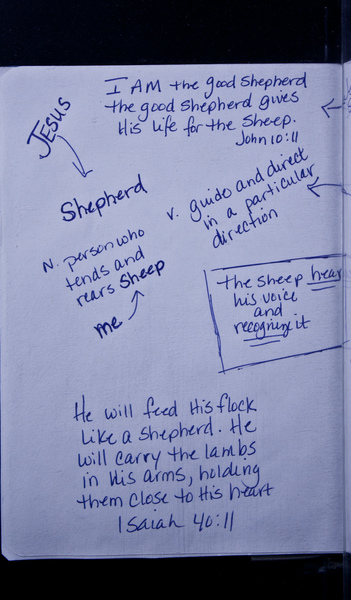 I AM the good Shepherd
the good shepherd gives
His life for the Sheep.
John 10:11
JESUS
Shepherd
N. person who
tends and
rears Sheep
me
v. guide and direct
in a particular
direction
the sheep hear
his voice
and
recognize it
He will feed His flock
Like a shepherd. He
will carry the lambs
in His arms, holding
them close to His heart
Isaiah 40:11